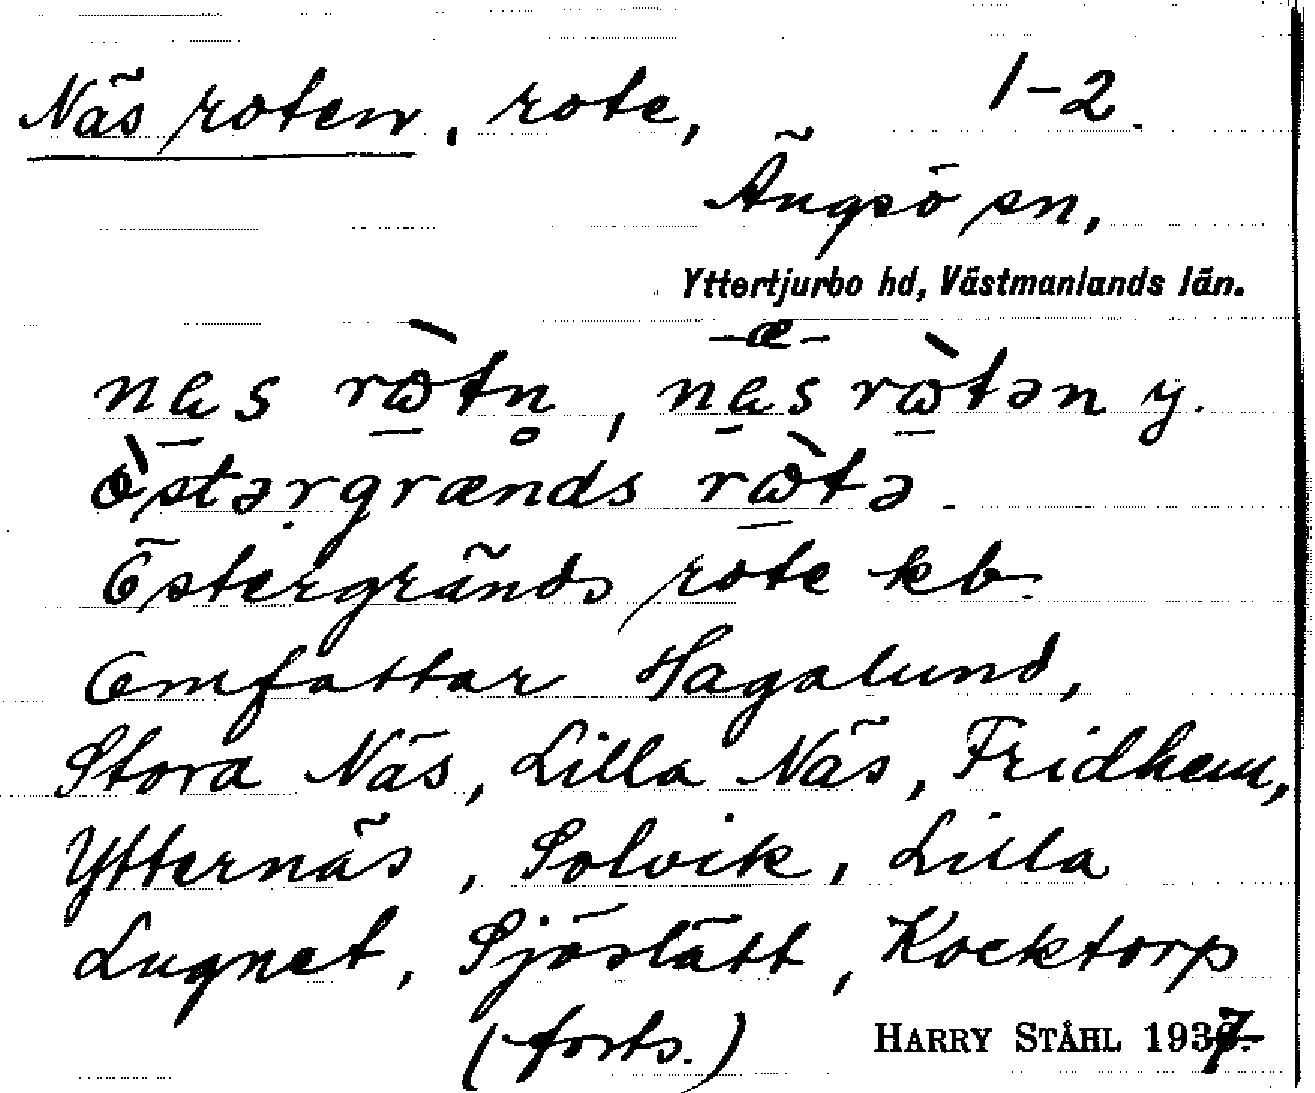 Näs roten, rote, 1-2.
Ängsö sn,
Yttertjurbo hd, Västmanlands län.
-æ-
nes rωtn̥, nes rωtən y.
östərgrænds rωtə.
Östergränds rote kb.
Omfattar Hagalund,
Stora Näs, Lilla Näs, Fridhem,
Ytternäs, Solvik, Lilla
Lugnet, Sjöslätt, Kocktorp
(forts.) HARRY STÅHL 1937